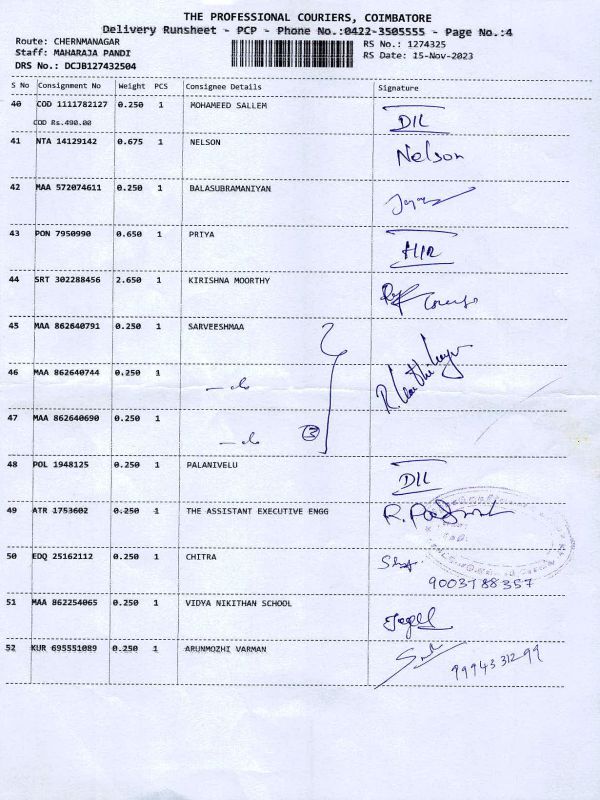 THE PROFESSIONAL COURIERS, COIMBATORE
Delivery Runsheet - PCP - Phone No.:0422-3505555 - Page No.:4
Route: CHERNMANAGAR
RS No.: 1274325
Staff: MAHARAJA PANDI
RS Date: 15-Nov-2023
DRS No.: DCJB127432504
S No Consignment No Weight PCS Consignee Details Signature
40 COD 1111782127 0.250 1 MOHAMEED SALLEM DIL
COD Rs.490.00
41 NTA 14129142 0.675 1 NELSON Nelson
42 MAA 572074611 0.250 1 BALASUBRAMANIYAN
43 PON 7950990 0.650 1 PRIYA
44 SRT 302288456 2.650 1 KIRISHNA MOORTHY
45 MAA 862640791 0.250 1 SARVEESHMAA
46 MAA 862640744 0.250 1 - do
47 MAA 862640690 0.250 1 - do 3
48 POL 1948125 0.250 1 PALANIVELU DIL
49 ATR 1753602 0.250 1 THE ASSISTANT EXECUTIVE ENGG
50 EDQ 25162112 0.250 1 CHITRA
9003788357
51 MAA 862254065 0.250 1 VIDYA NIKITHAN SCHOOL
52 KUR 695551089 0.250 1 ARUNMOZHI VARMAN 9994331299